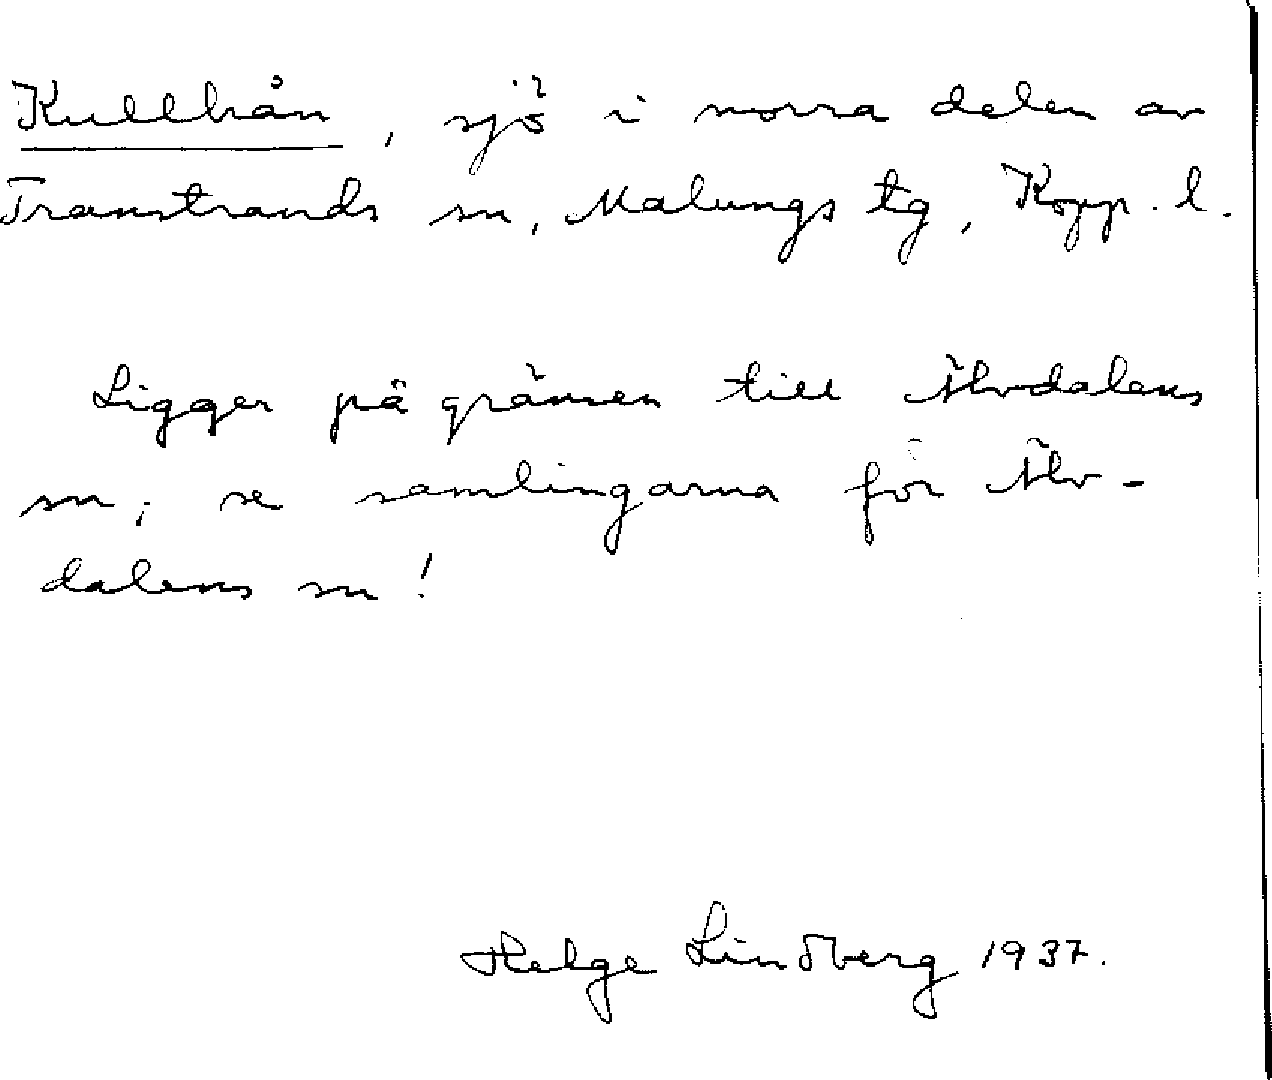 Kullhån, sjö i norra delen av
Transtrands sn, Malungs tg, Kopp. l.
Ligger på gränsen till Älvdalens
sn; se samlingarna för Älv-
dalens sn!
Helge Lindberg 1937.